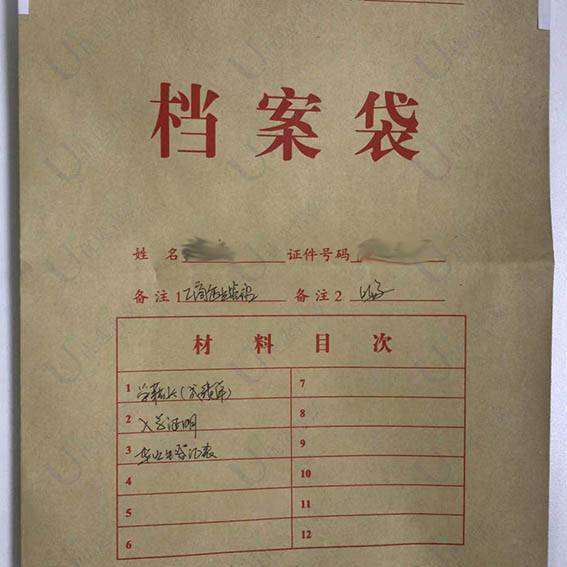 档案袋
姓 名 证件号码
备注1 工商企业管理 备注2
材料目次
1 学籍卡(成绩单) 7
2 入学证明 8
3 毕业生登记表 9
4 10
5 11
6 12